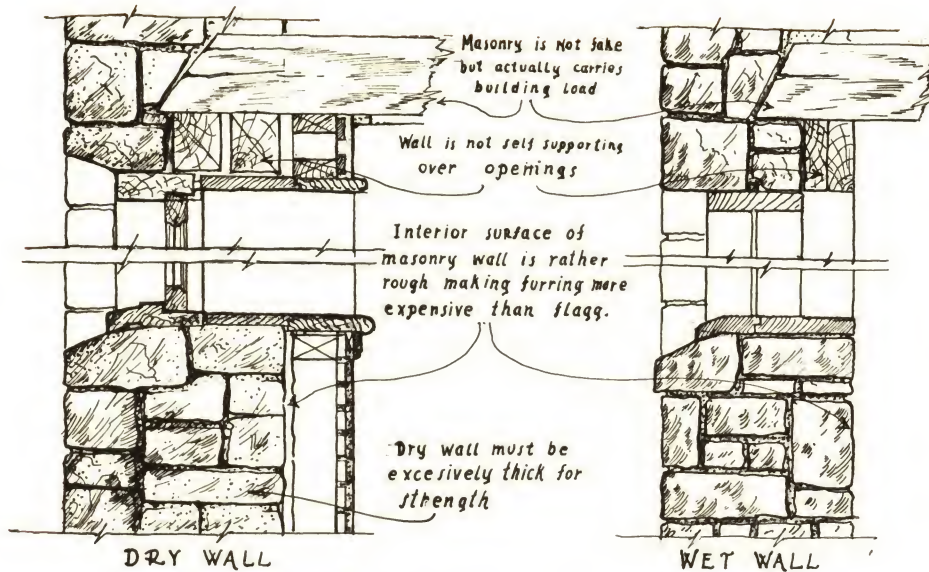 Masonry is Not fake
but actually carries
building load
Wall is not self supporting
over openings
Interior surface of
masonry wall is rather
rough making furring more
expensive than flagg.
Dry wall must be
excesively thick for
strength
DRY WALL
WET WALL